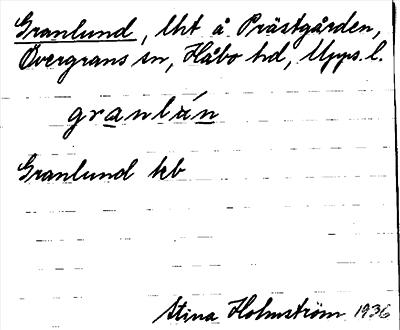 Granlund, lht å Prästgården,
Övergrans sn, Håbo hd, Upps. l.
granlún
Granlund kb
Stina Holmström 1936